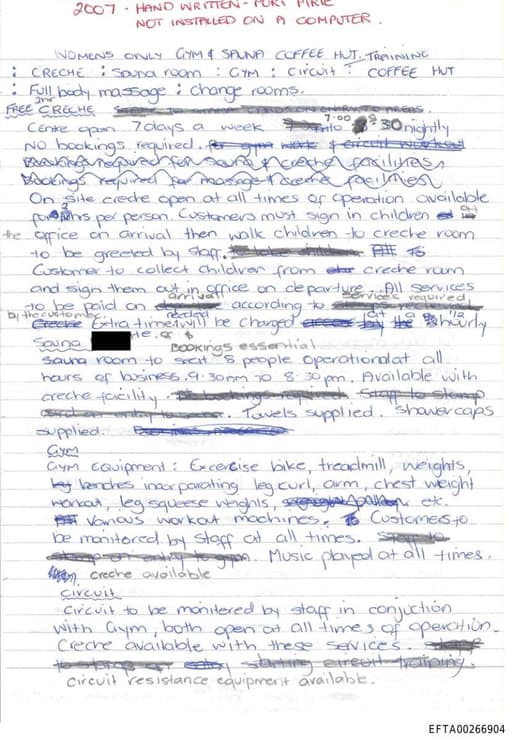 2007 - HAND WRITTEN - PORT PIRIE
NOT INSTALLED ON A COMPUTER.
WOMENS ONLY GYM & SAUNA COFFEE HUT. TRAINING
: CRECHE : Sauna room : GYM : Circuit : COFFEE HUT
: Full body massage : change rooms.
FREE 2hr CRECHE
Centre open 7 days a week 7:00 to 8 30 nightly
NO bookings required.
Bookings required for sauna & creche facilities
Bookings required for massage & creche facilities
On site creche open at all times of operation available
for 2 hrs per person. Customers must sign in children at
the office on arrival then walk children to creche room
to be greeted by staff. To
Customer to collect children from creche room
and sign them out in office on departure. All services
to be paid on arrival according to services required
by the customer Extra time needed will be charged at a hourly
Sauna
Bookings essential
Sauna room to seat 8 people operational at all
hours of business. 9.30am to 8.30pm. Available with
creche facility.
Towels supplied. Showercaps
supplied.
Gym
Gym equipment: Excercise bike, treadmill, weights,
benches incorparating leg curl, arm, chest weight
workout, leg squeese weights, etc.
Various workout machines. Customers to
be monitored by staff at all times.
Music played at all times.
creche available
Circuit
Circuit to be monitered by staff in conjuction
with Gym, both open at all times of operation.
Creche available with these services.
starting circuit training.
circuit resistance equipment available.
EFTA00266904